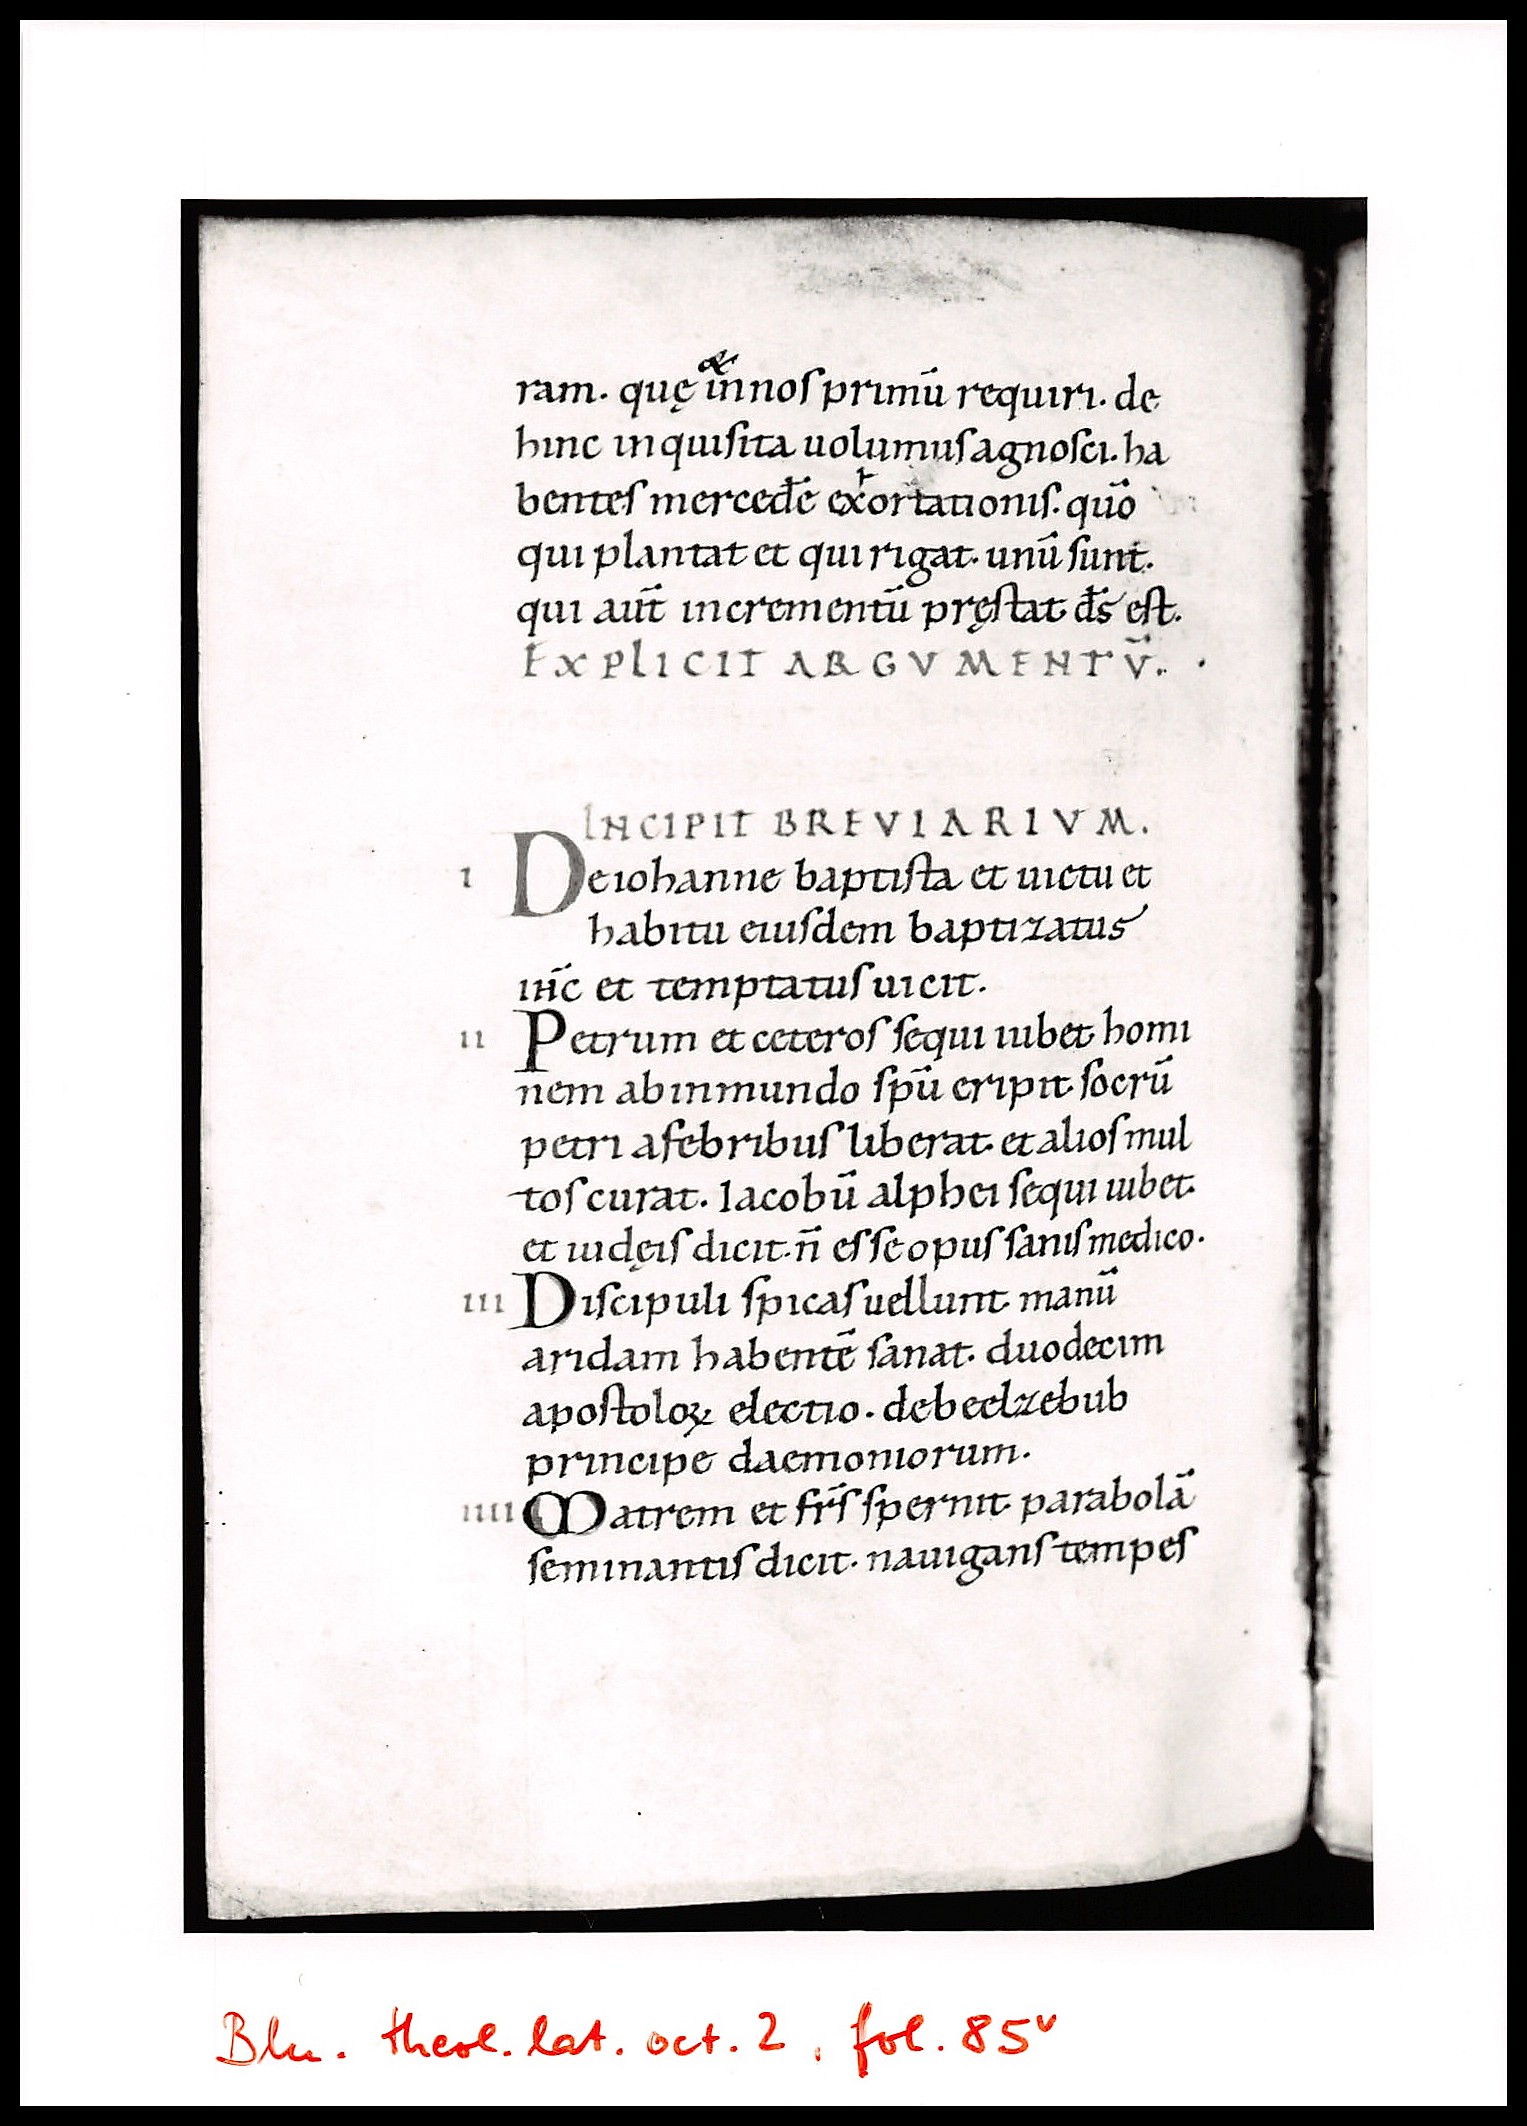 &
ram. quę in nos primū requiri. de
hinc inquisita uolumus agnosci. ha
bentes mercedē exortationis. quō
qui plantat et qui rigat. unū sunt.
qui aūt incrementū pręstat d̄s est.
EXPLICIT ARGVMENTV̄.
INCIPIT BREVIARIVM.
I De iohanne baptista et uictu et
habitu eiusdem baptizatus
ih̄c et temptatus uicit.
II Petrum et ceteros sequi iubet homi
nem ab inmundo sp̄u eripit. socrū
petri a febribus liberat. et alios mul
tos curat. Iacobū alphei sequi iubet.
et iudęis dicit. n̄ esse opus sanis medico.
III Discipuli spicas uellunt. manū
aridam habentē sanat. duodecim
apostoloꝝ electio. de beelzebub
principe daemoniorum.
IIII Matrem et fr̄s spernit. parabolā
seminantis dicit. nauigans tempes
Bln. theol. lat. oct. 2, fol. 85v